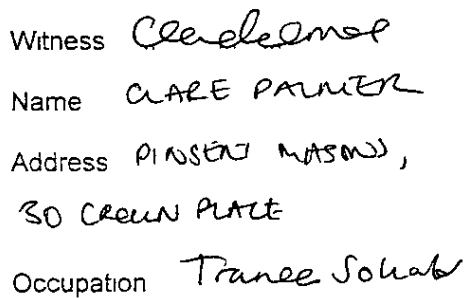 Witness
Name CLARE PALMER
Address PINSENT MASONS,
30 CROWN PLACE
Occupation Trainee Solicitor